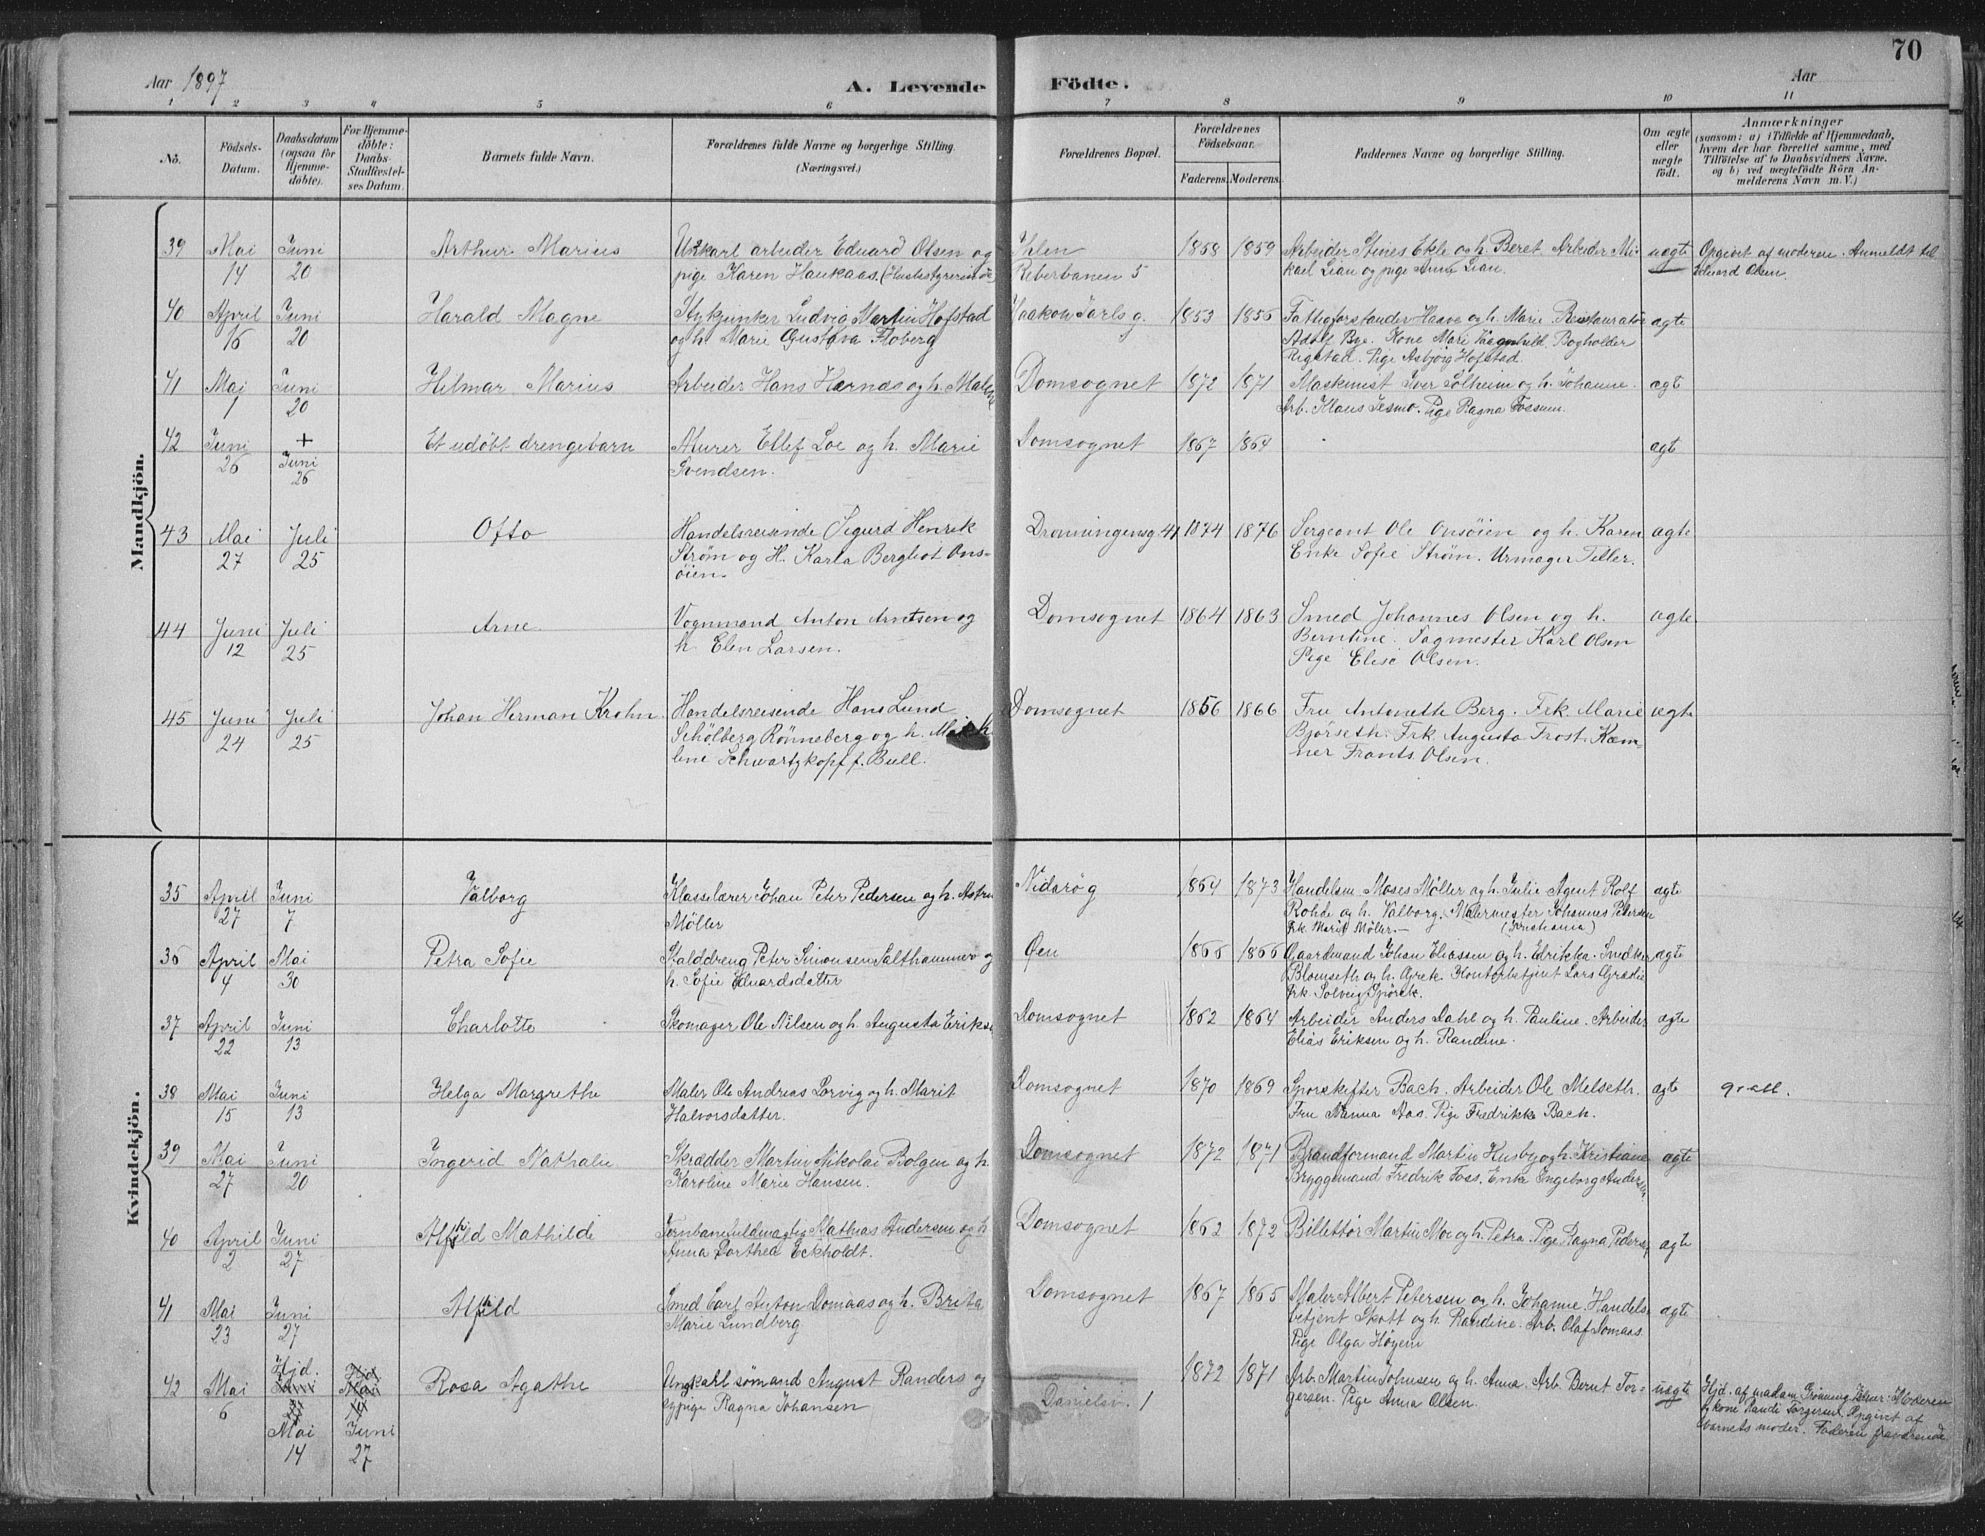 70
Aar 1897
A. Levende Födte.
Aar
1 2 3 4 5 6 7 8 9 10 11
No.
Födsels-Datum.
Daabsdatum (ogsaa for Hjemme-döbte).
For Hjemme-döbte: Daabs-Stadfæstel-ses Datum.
Barnets fulde Navn.
Forældrenes fulde Navne og borgerlige Stilling.
(Næringsvei.)
Forældrenes Bopæl.
Forældrenes Födselsaar.
Faderens. Moderens.
Faddernes Navne og borgerlige Stilling.
Om ægte eller uægte födt.
Anmærkninger
(saasom: a) i Tilfælde af Hjemmedaab,
hvem der har forrettet samme, med
Tilföielse af to Daabsvidners Navne,
og b) ved uægtefödte Börn An-
melderens Navn m.V.)
Mandkjön.
39 Mai 14 Juni 20 Arthur Marius
Ungkarl arbeider Eduard Olsen og
pige Karen Haukaas.
Ihlen
5
1858 1859
Arbeider Ekle og h. Beret. Arbeider Mi-
kael Lian og pige Anne Lian.
uægte
Opgivet af moderen. Anmeldt til
Eduard Olsen.
40 April 16 Juni 20 Harald Magne
Ludvig Martin Hofstad
og h. Marie Gustava Floberg
Haakon Jarls g.
1853 1856
Fattigforstander Haave og h. Marie. Restauratør
Adolf Bye. Kone Mari. Bogholder
Rigstad. Pige Asbjørg Hofstad.
ægte
41 Mai 1 Juni 20 Hilmar Marius
Arbeider Hans Hernæs og h. Malene
Domsognet
1872 1871
Maskinist Iver Solheim og h. Johanne.
Arb. Klaus Jesmo. Pige Ragna Fossum.
ægt
42 Juni 26 + Juni 26 Et udøbt drengebarn
Murer Ellef Loe og h. Marie
Svendsen.
Domsognet
1867 1864
ægt
43 Mai 27 Juli 25 Otto
Handelsreisende Sigurd Henrik
Strøm og H. Karla Bergliot Ons-
øien.
Dronningensg. 41
1874 1876
Sergeant Ole Onsøien og h. Karen
Enke Sofie Strøm. Urmager Teller.
ægte
44 Juni 12 Juli 25 Arne
Vognmand Anton Arntsen og
h. Elen Larsen.
Domsognet
1864 1863
Smed Johannes Olsen og h.
Berntine. Sagmester Karl Olsen
Pige Elise Olsen.
ægte
45 Juni 24 Juli 25 Johan Herman Krohn
Handelsreisende Hans Lund
Schölberg Rönneberg og h.
Schwartzkopf f. Bull.
Domsognet
1856 1866
Fru Antoneth Berg. Frk. Marie
Bjørseth. Frk. Augusta Frost. Kæm-
ner Frants Olsen.
ægte
Kvindekjön.
35 April 27 Juni 7 Valborg
Klasselærer Johan Peter Pedersen og h. Astri
Møller
Nidarø g
1864 1873
Handelsm. Moses Møller og h. Julie Agent Rolf
Rohde og h. Valborg. Malermester Johannes Petersen
Frk. Marie Møller. (Kristiania)
ægte
36 April 4 Mai 30 Petra Sofie
Stalddreng Peter Simonsen Salthammer og
h. Sofie Eduardsdatter
Øen
1866 1866
Gaardmand Johan Eliassen og h. Edrikka. Snedker
Blomseth og h. Grete. Kontorbetjent Lars Græslie
Frk. Solveig Sjørek.
ægte
37 April 22 Juni 13 Charlotte
Skomager Ole Nilsen og h. Augusta Eriks
Domsognet
1862 1864
Arbeider Anders Dahl og h. Pauline. Arbeider
Elias Eriksen og h. Randine.
ægte
38 Mai 15 Juni 13 Helga Margrethe
Maler Ole Andreas Lorvig og h. Marit
Halvorsdatter.
Domsognet
1870 1869
Sporskifter Bach. Arbeider Ole Melseth.
Fru Nanna Aas. Pige Fredrikke Bach.
ægte
39 Mai 27 Juni 20 Ingerid Nathalie
Skrædder Martin Nikolai Bolgen og h.
Karoline Marie Hansen.
Domsognet
1872 1871
Brandformand Martin Husby og h. Kristiane
Bryggemand Fredrik Foss. Enke Engeborg Anders
ægte
40 April 2 Juni 27 Alfhild Mathilde
Mathias Andersen og h
Anna Dorthea Eckholdt.
Domsognet
1862 1872
Billettør Martin Moe og h. Petra. Pige Ragna Peders
ægte
41 Mai 23 Juni 27 Alfhild
Smed Carl Anton Domaas og h. Brita
Marie Lundberg
Domsognet
1867 1865
Maler Albert Petersen og h. Johanne Handels
betjent Skatt og h. Randine. Arb. Olaf Domaas.
Pige Olga Høyem
ægte
42 Mai 6 Hjd. Mai 14 Juni 27 Rosa Agathe
Ungkarl sømand August Randers og
pige Ragna Johansen
Danielsv. 1
1872 1871
Arb. Martin Johnsen og h. Anna. Arb. Bernt Tor-
gersen. Pige Anna Olsen.
uægte
Hjd. af madam Grönning
kone Randi Torgersen. Opgivet af
barnets moder. Faderen fraværende